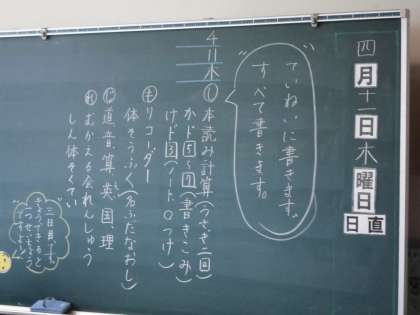 四月十一日木曜日
日直
ていねいに書きます。
すべて書きます。
4
11
木
し 本読み計算(つづき二回)
かド5~7(書きこみ)
けド3(ノート、○つけ)
も リコーダー
体そうふく(名ふだなおし)
じ 道、音、算、英、国、理
れ むかえる会れんしゅう
しん体そくてい
三日目です。